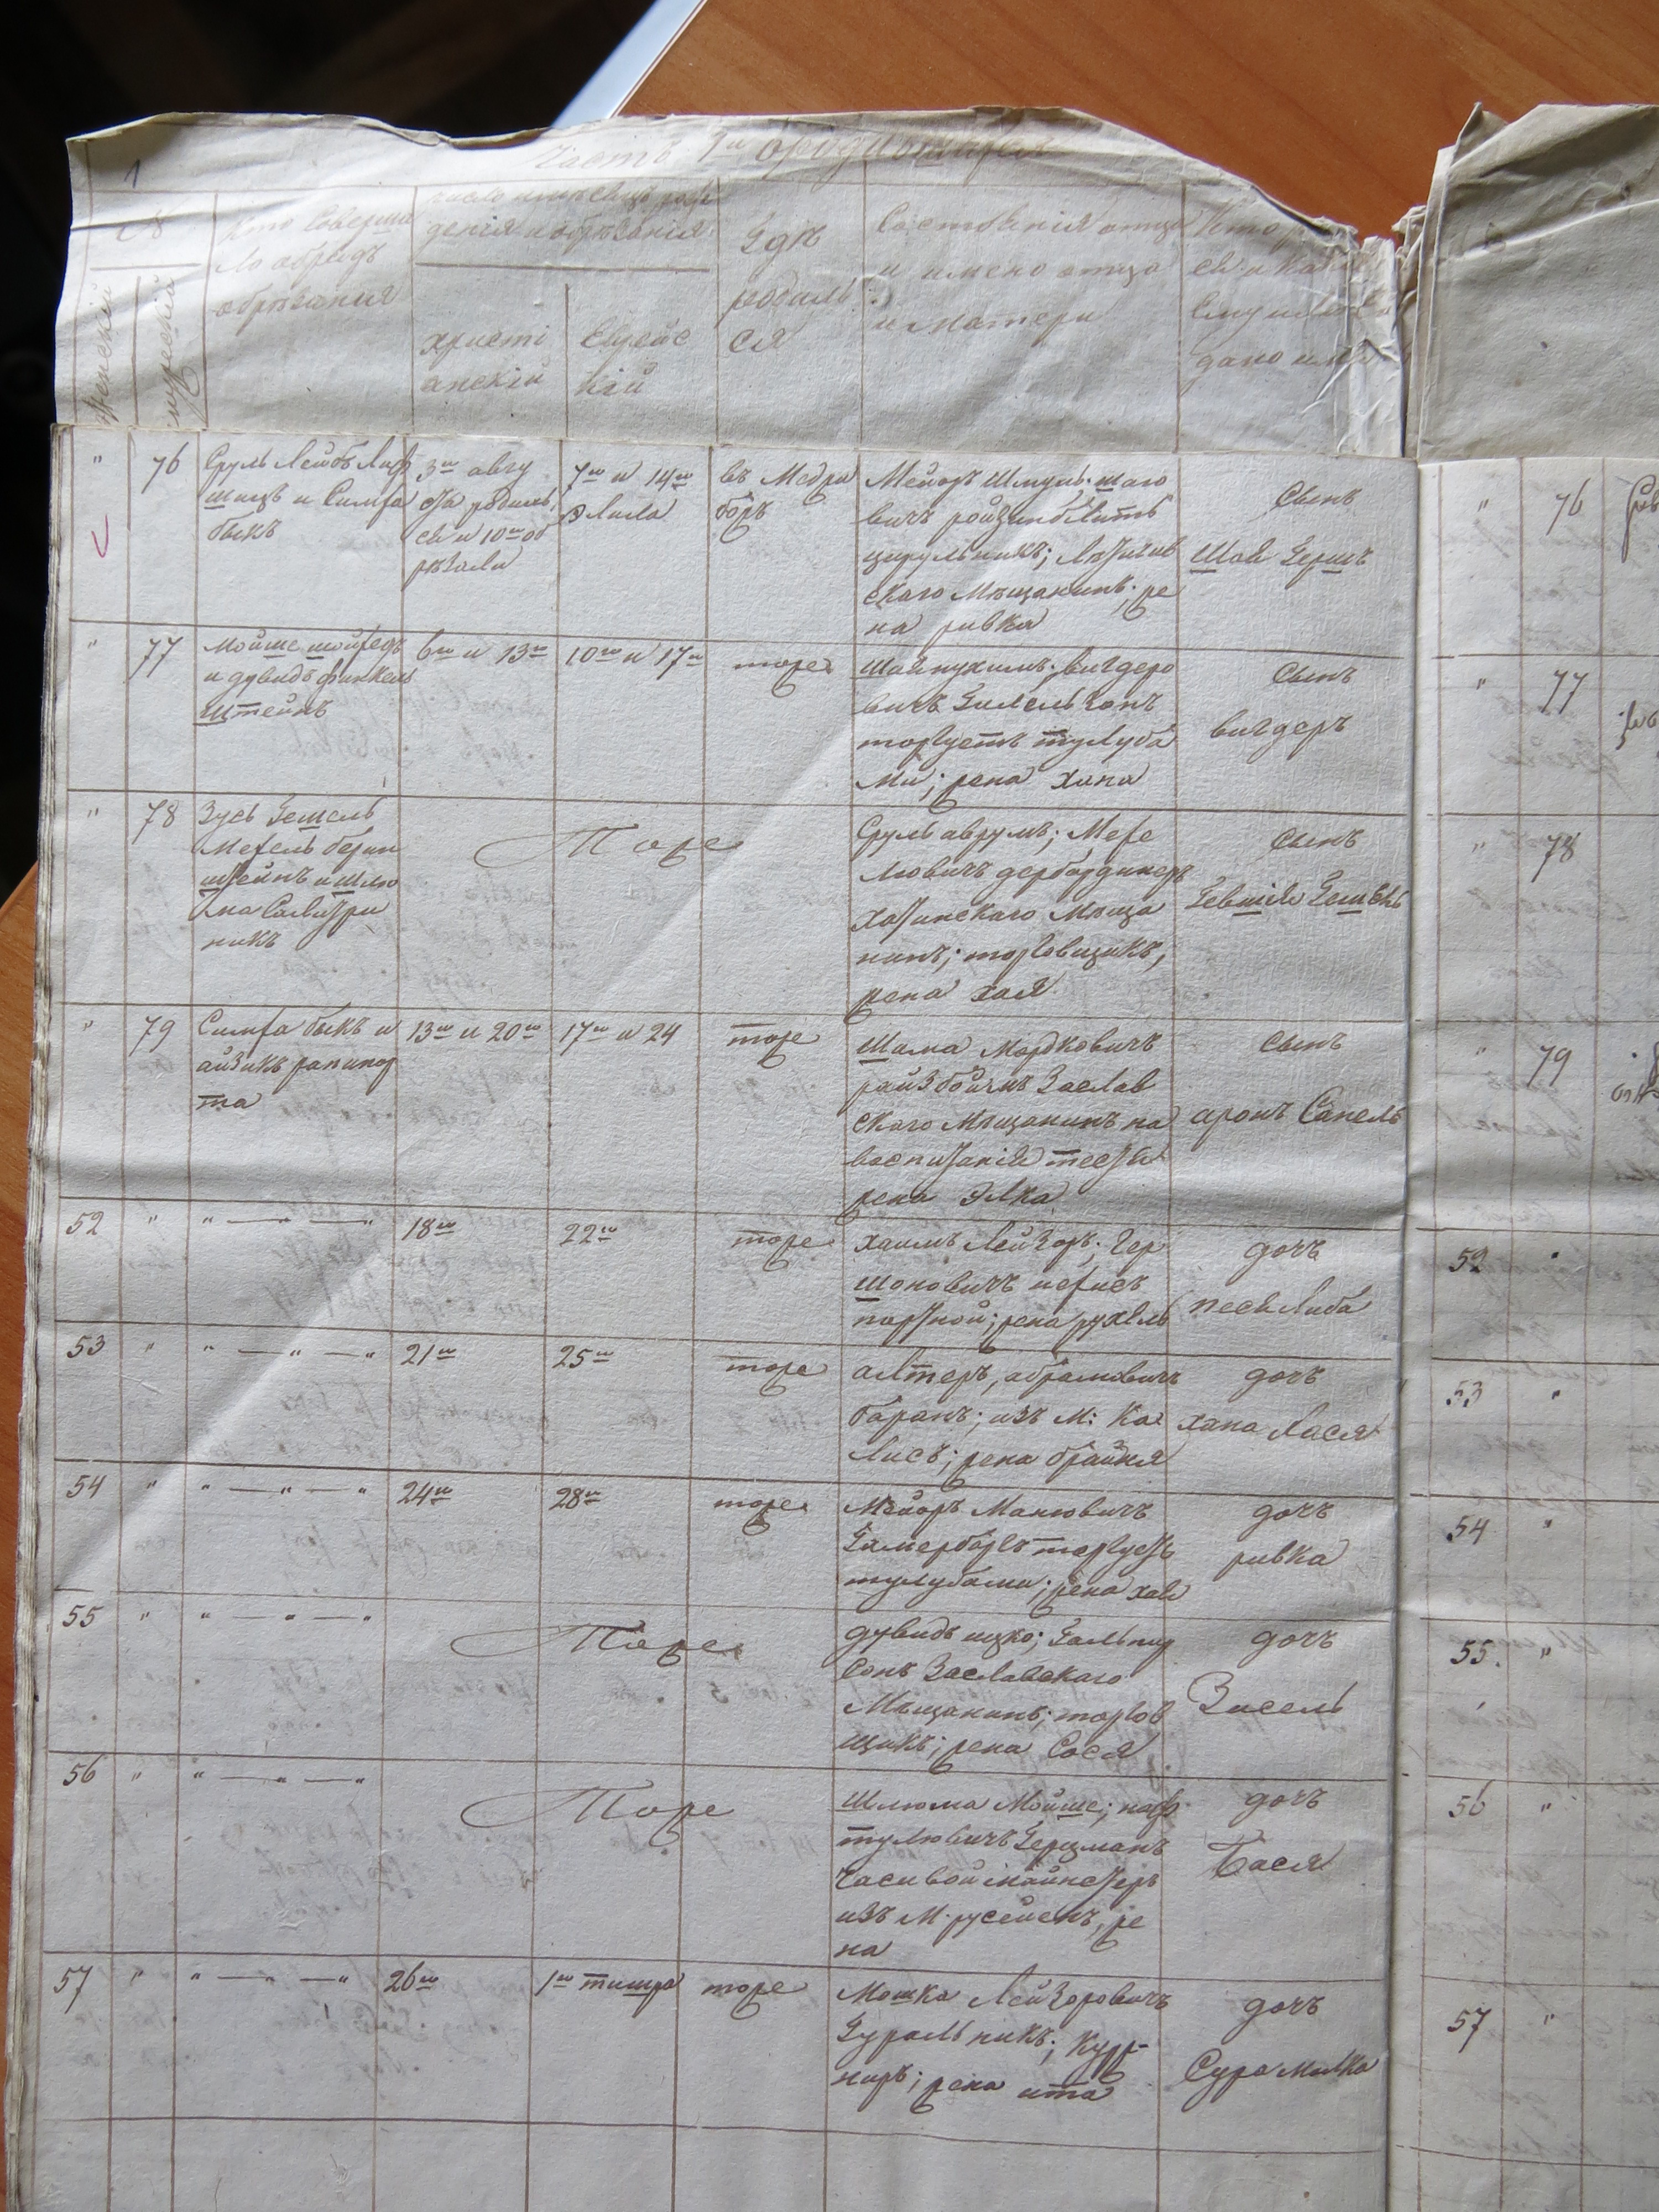 1
Часть 1я о родившихся
№
Женскій
мужескій
Кто Соверша
ло обрядъ
обрѣзанія
число и мѣсяцъ рож
денія и обрѣзанія
христі
анскій
Еврейс
кій
Гдѣ
родил
ся
Состоянія отца
и имено отца
и матери
Кто
дано имя
" 76
Сруль Лейбъ Лиф
шицъ и Симха
быкъ
3го авгу
ста родил
ся и 10го об
рѣзали
7го и 14го
Элила
въ Медри
боръ
Мейоръ Шмуль Шаго
вичъ ройзинблитъ
цирульникъ;
скаго Мѣщанинъ; же
на ривка
Сынъ
Шая Гершъ
" 77
Мойше шойхедъ
и дувидъ финкель
штейнъ
6го и 13го
10го и 17го
тоже
Шая нухимъ; вигдеро
вичъ
торгуетъ тулуба
ми; жена хана
Сынъ
вигдеръ
" 78
Зусь Гешель
Мехель берин
штейнъ и шлю
ма
никъ
Тоже
Сруль аврумъ; Мехе
лювичъ дербардикеръ
Хотинскаго Мѣща
нинъ; торговщикъ,
жена хая
Сынъ
Гевшія Гешель
" 79
Симха быкъ и
айзикъ рапипор
та
13го и 20го
17го и 24
тоже
Шама Мордковичъ
райзбоймъ Заслав
скаго Мѣщанинъ на
воспитаніи тестя
жена элка
Сынъ
аронъ Санель
52 " " — " — "
18го
22го
тоже
хаимъ Лейзоръ; Гер
шоновичъ
портной; жена рухель
дочъ
песя Либа
53 " " — " — "
21го
25го
тоже
алтеръ, абрамовичъ
баранъ; изъ М: Ка
лисъ; жена брайня
дочъ
хана Лася
54 " " — " — "
24го
28го
тоже
Мейоръ Манювичъ
Гамербергъ торгуетъ
тулубами; жена хая
дочъ
ривка
55 " " — " — "
Тоже
дувидъ ицко; Гальпир
сонъ Заславскаго
Мѣщанинъ; торгов
щикъ; жена Сося
дочъ
Зисель
56 " " — " — "
Тоже
Шлюма Мойше; наф
тулювичъ Герцманъ
часивой майнстеръ
изъ М. русейенъ, же
на
дочъ
Бася
57 " " — " — "
26го
1го тишра
тоже
Мошка Лейзоровичъ
Гуральникъ;
жена ита
дочъ
Сура Милка
" 76
" 77
" 78
" 79
52
53
54
55. "
56 "
57 "